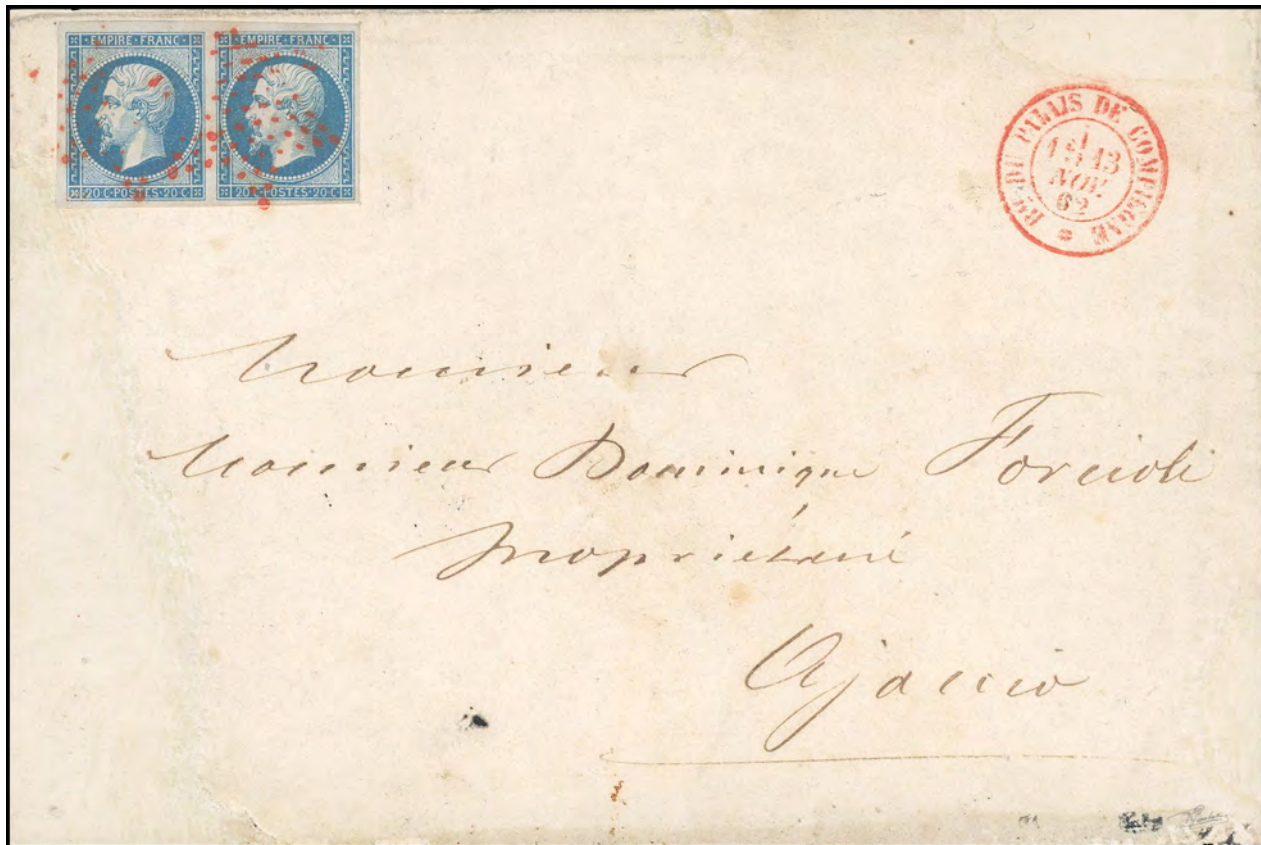 EMPIRE·FRANC· EMPIRE·FRANC·
20 C·POSTES·20 C 20 C·POSTES·20 C
Bau DU PALAIS DE COMPIEGNE
13
NOV.
62
Monsieur
Monsieur Dominique Forcioli
propriétaire
Ajaccio